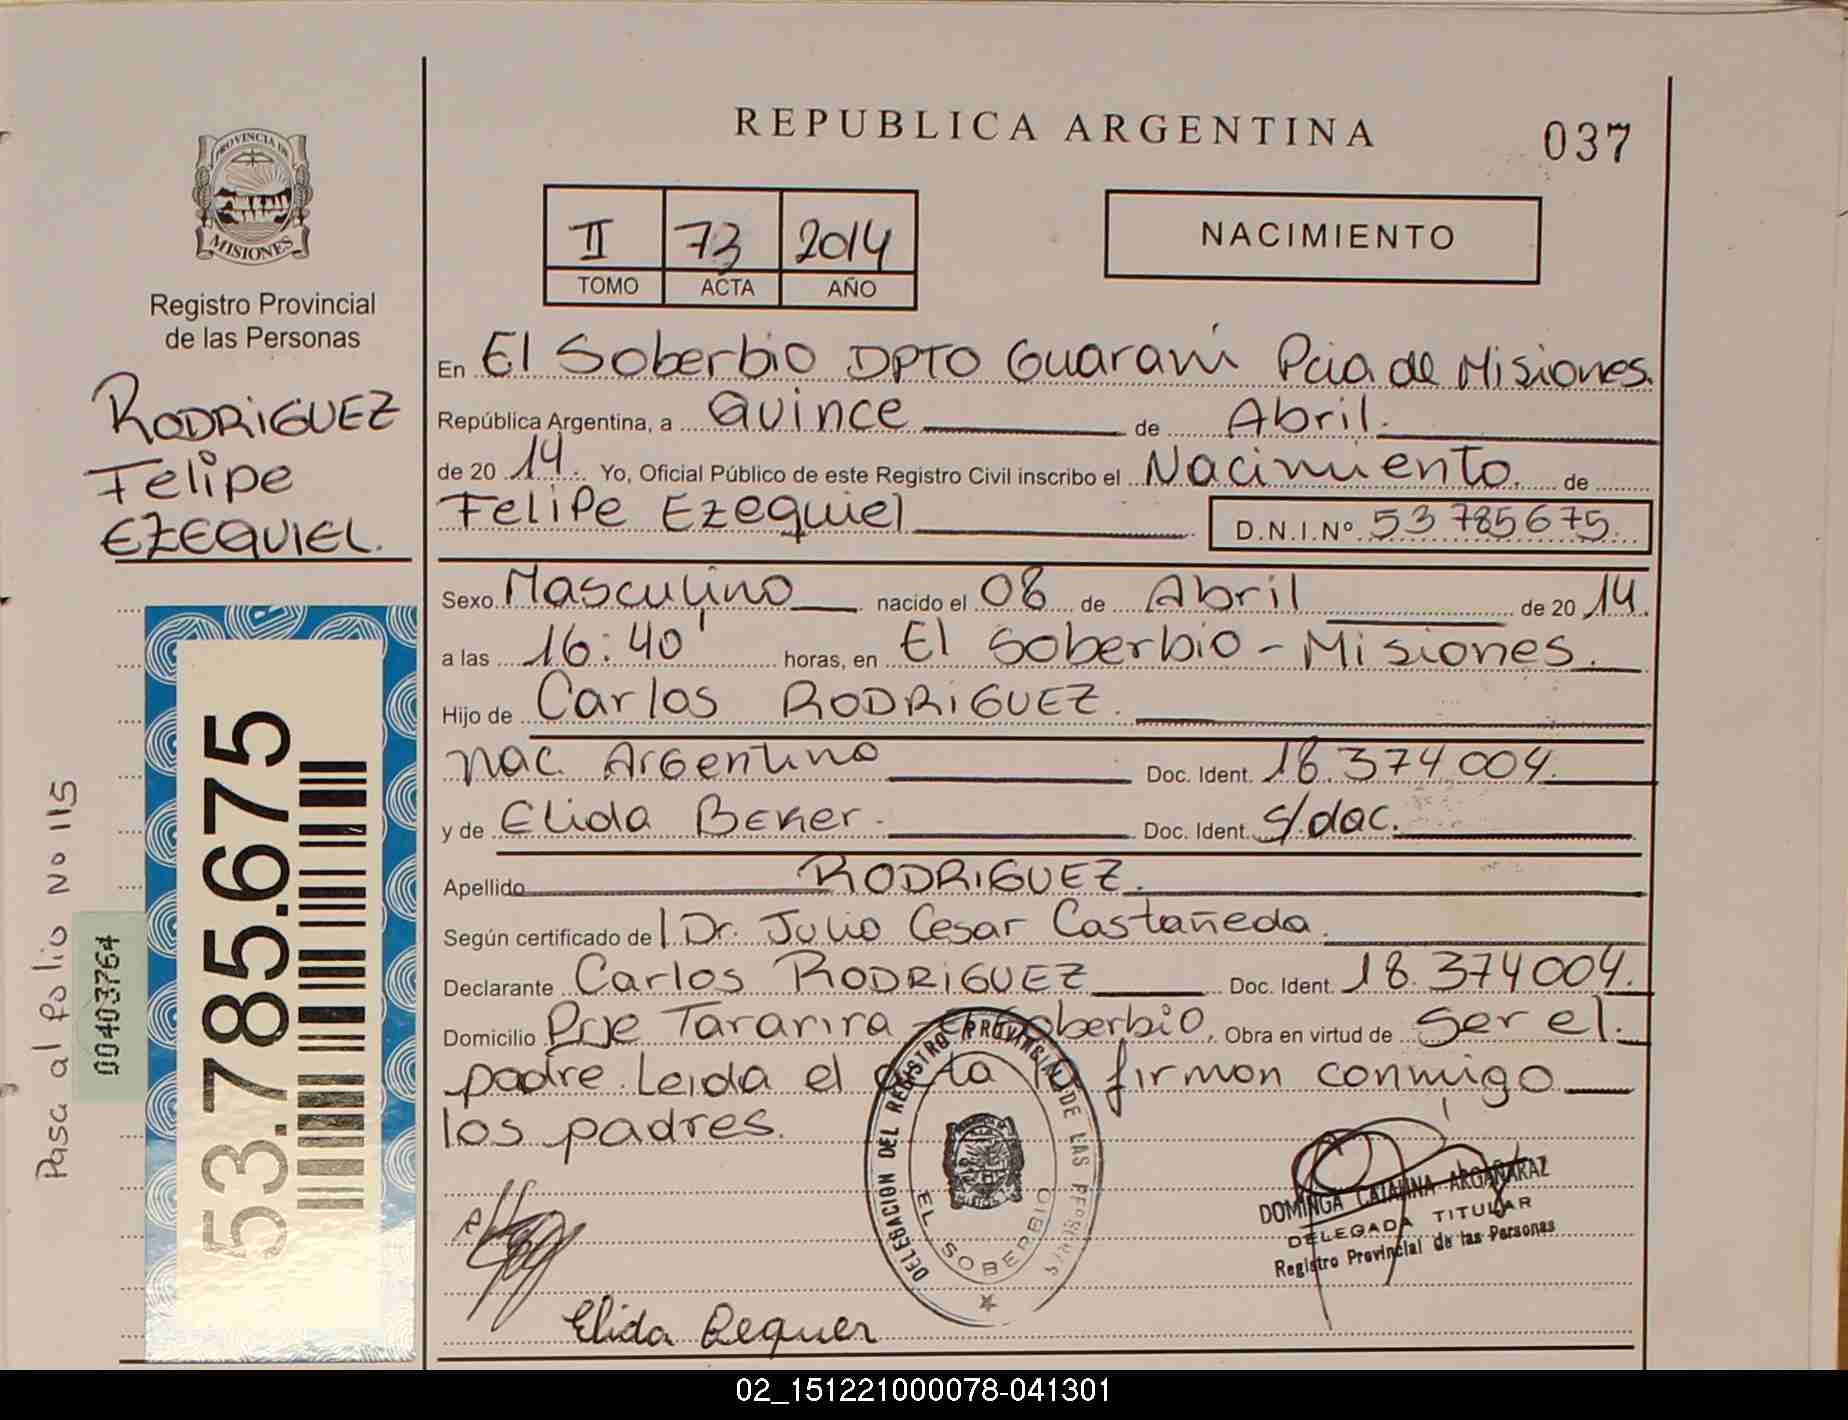 REPUBLICA ARGENTINA
037
PROVINCIA DE
MISIONES
Registro Provincial
de las Personas
II 73 2014
TOMO ACTA AÑO
NACIMIENTO
RODRIGUEZ
Felipe
EZEQUIEL.
En El Soberbio DPTO Guaraní Pcia de Misiones.
República Argentina, a Quince de Abril.
de 20 14. Yo, Oficial Público de este Registro Civil inscribo el Nacimiento. de
Felipe Ezequiel D.N.I.Nº 53 785675.
Sexo Masculino nacido el 08 de Abril de 20 14.
a las 16:40' horas, en El Soberbio - Misiones.
Hijo de Carlos RODRIGUEZ.
nac. Argentino Doc. Ident. 18.374.004.
y de Elida Beker. Doc. Ident. s/doc.
Apellido RODRIGUEZ.
Según certificado de Dr. Julio Cesar Castañeda.
Declarante Carlos RODRIGUEZ Doc. Ident. 18.374004.
Domicilio Prje Tararira - El Soberbio, Obra en virtud de ser el.
padre. Leida el acta la firman conmigo
los padres.
53.785.675
00403764
Pasa al Folio No 115
DELEGACION DEL REGISTRO PROVINCIAL DE LAS PERSONAS
EL SOBERBIO
DOMINGA CATALINA ARGAÑARAZ
DELEGADA TITULAR
Registro Provincial de las Personas
Elida Bequer
02_151221000078-041301